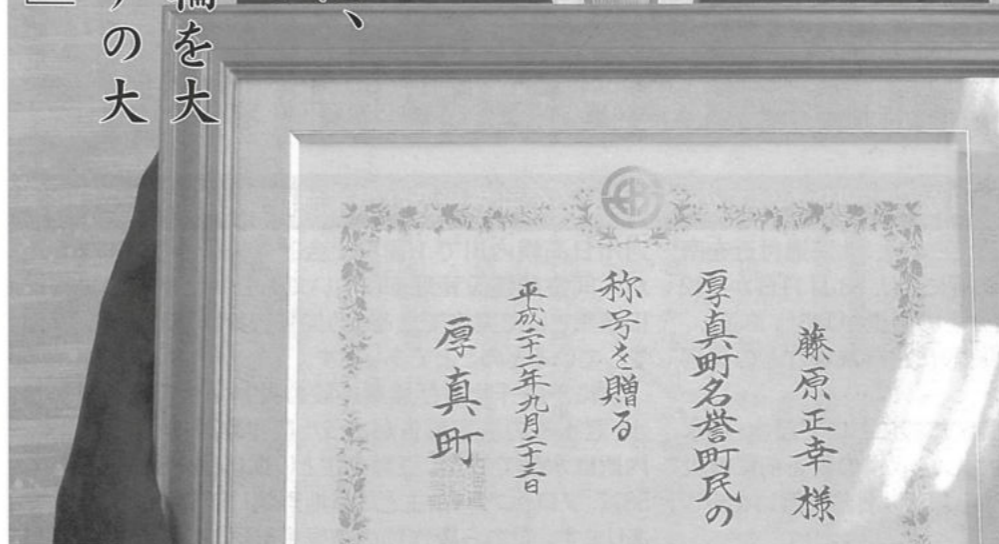 備を大
の大
藤原正幸様
厚真町名誉町民の
称号を贈る
平成二十二年九月二十三日
厚真町